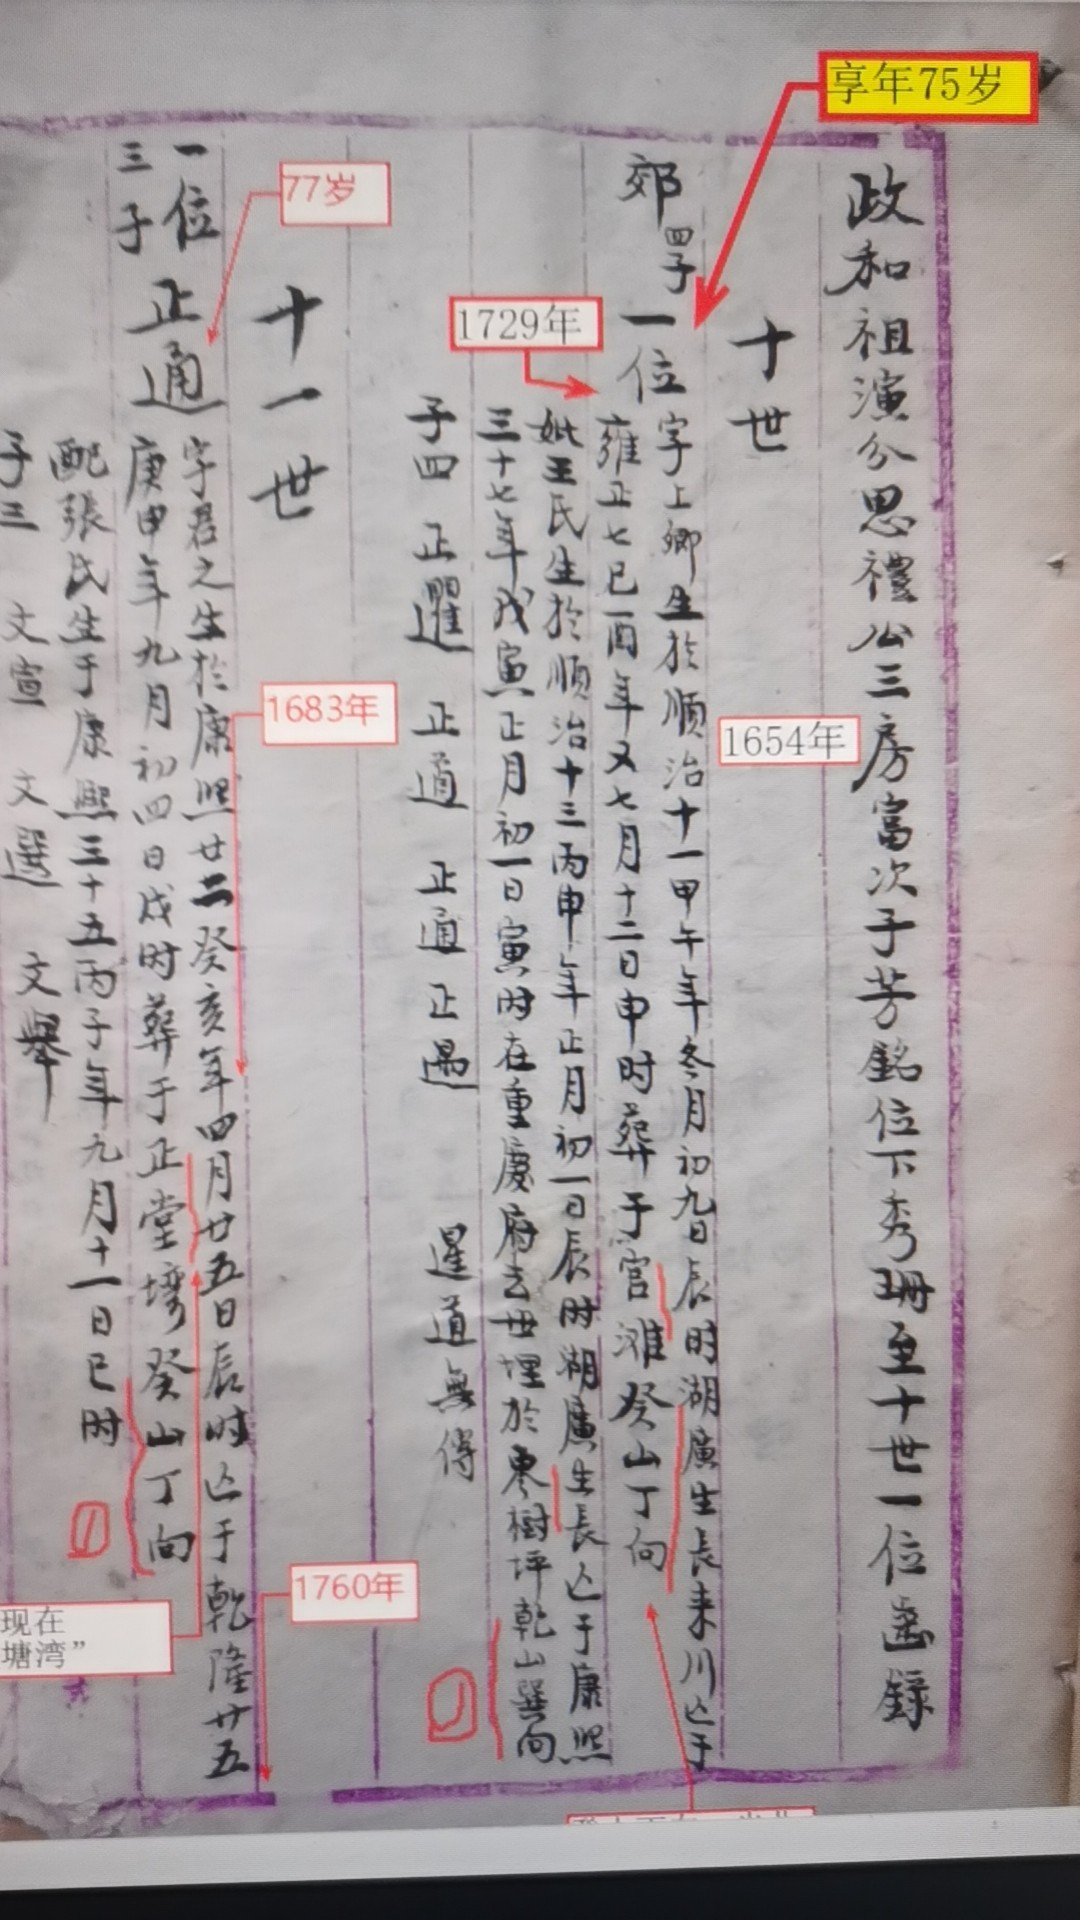 政和祖演分思禮公三房富次子芳銘位下秀珊至十世一位函錄
十世
享年75岁
郊
四子
一位
字上卿生於順治十一甲午年冬月初九日辰时湖廣生長来川亾于
1654年
1729年
雍正七已酉年又七月十二日申时葬于官滩癸山丁向
妣王氏生於順治十三丙申年正月初一日辰时湖廣生長亾于康熙
三十七年戊寅正月初一日寅时在重慶府去世埋於枣樹坪乾山巽向
子四 正暹 正道 正通 正遇 暹道無傳
十一世
77岁
一位
三子
正通
字君之生於康熙廿二癸亥年四月廿五日辰时亾于乾隆廿五
1683年
1760年
庚申年九月初四日戍时葬于正堂塆癸山丁向
配張氏生于康熙三十五丙子年九月十一日已时
子三 文宣 文選 文舉
现在
塘湾”